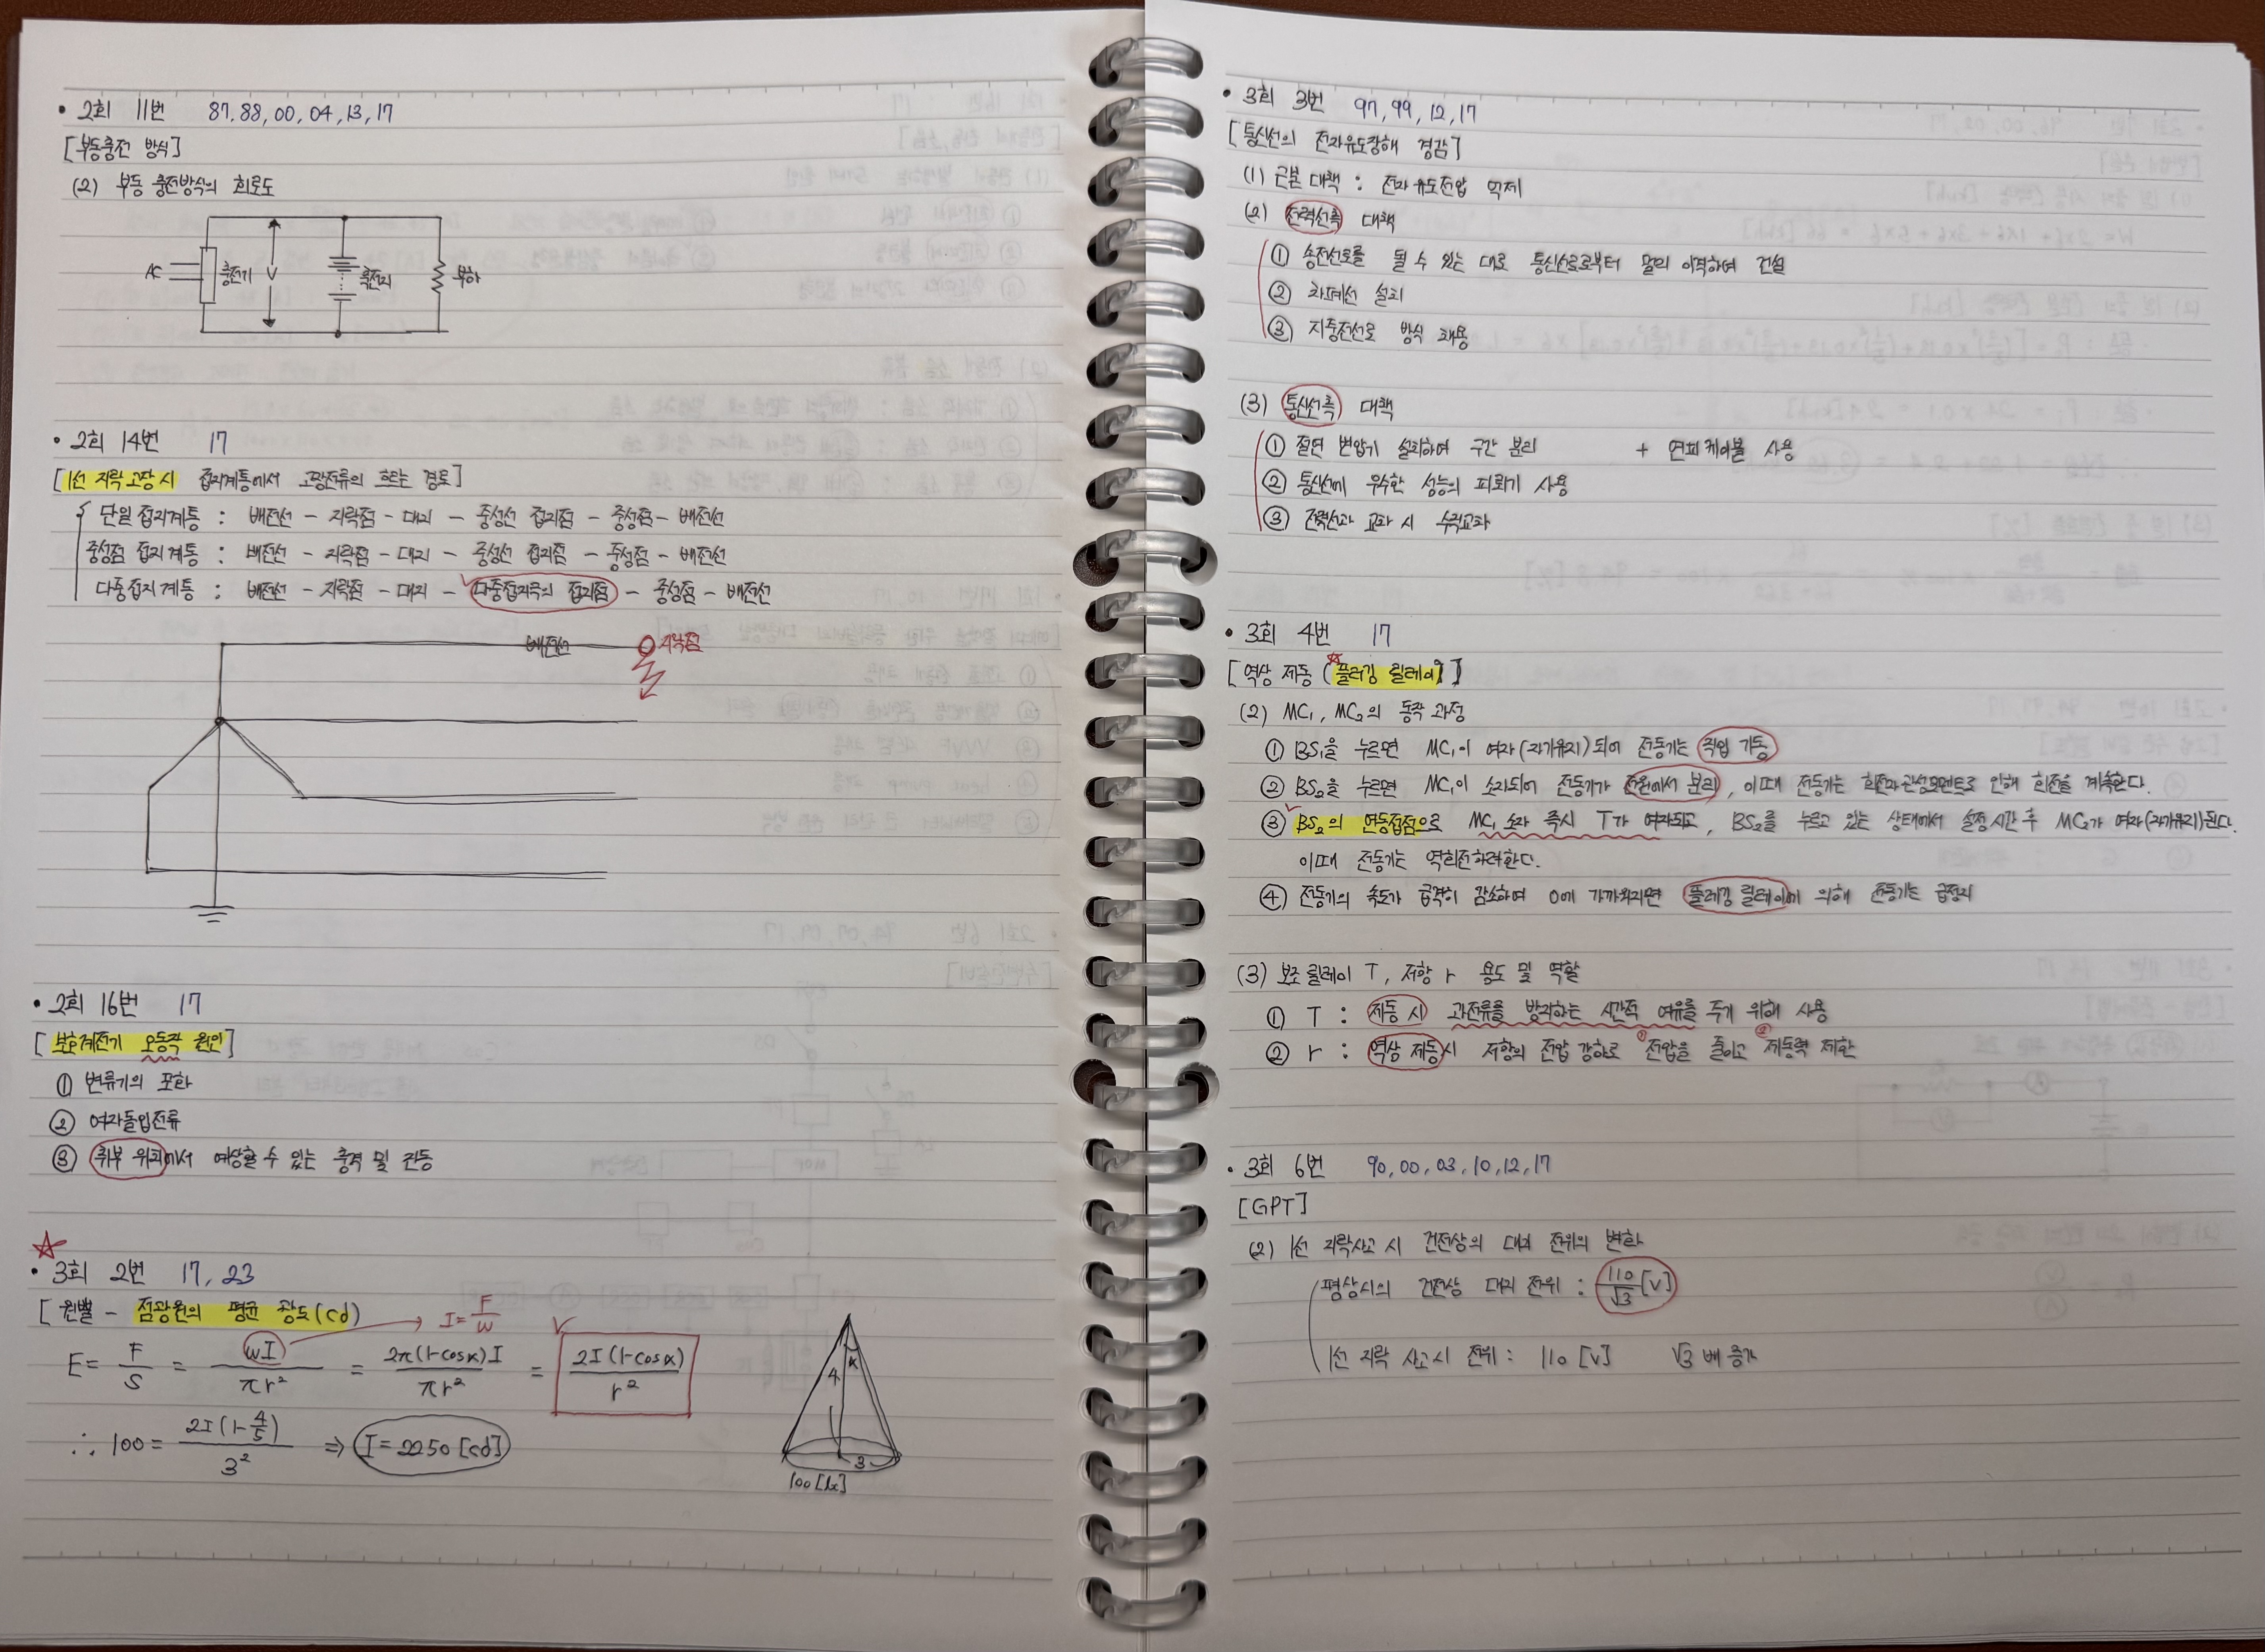 • 2회 11번 87, 88, 00, 04, 13, 17
[부동충전 방식]
(2) 부동 충전방식의 회로도
AC 충전기 V 축전지 부하
• 2회 14번 17
[1선 지락 고장 시 접지계통에서 고장전류의 흐르는 경로]
단일 접지계통 : 배전선 - 지락점 - 대지 - 중성선 접지점 - 중성점 - 배전선
중성점 접지계통 : 배전선 - 지락점 - 대지 - 중성선 접지점 - 중성점 - 배전선
다중접지계통 : 배전선 - 지락점 - 대지 - 다중접지극의 접지점 - 중성점 - 배전선
배전선 지락점
• 2회 16번 17
[보호계전기 오동작 원인]
① 변류기의 포화
② 여자돌입전류
③ 취부 위치에서 예상할 수 있는 충격 및 진동
☆
• 3회 2번 17, 23
[원뿔 - 점광원의 평균 광도(cd)
I = F/w
E = F/S = wI/πr² = 2π(1-cosα)I/πr² = 2I(1-cosα)/r²
∴ 100 = 2I(1-4/5)/3² ⇒ I = 2250 [cd]
α
4
3
100 [lx]
• 3회 3번 97, 99, 12, 17
[통신선의 전자유도장해 경감]
(1) 근본 대책 : 전자유도전압 억제
(2) 전력선측 대책
① 송전선로를 될 수 있는 대로 통신선로로부터 멀리 이격하여 건설
② 차폐선 설치
③ 지중전선로 방식 채용
(3) 통신선측 대책
① 절연 변압기 설치하여 구간 분리 + 연피케이블 사용
② 통신선에 우수한 성능의 피뢰기 사용
③ 전력선과 교차 시 수직교차
• 3회 4번 17
[역상 제동 (☆플러깅 릴레이)]
(2) MC₁, MC₂의 동작 과정
① BS₁을 누르면 MC₁이 여자(자기유지)되어 전동기는 직입 기동
② BS₂을 누르면 MC₁이 소자되어 전동기가 전원에서 분리, 이때 전동기는 회전자관성모멘트로 인해 회전을 계속한다.
③ BS₂의 연동접점으로 MC₁ 소자 즉시 T가 여자되고, BS₂를 누르고 있는 상태에서 설정시간 후 MC₂가 여자(자기유지)된다.
이때 전동기는 역회전하려한다.
④ 전동기의 속도가 급격히 감소하여 0에 가까워지면 플러깅 릴레이에 의해 전동기는 급정지
(3) 보조 릴레이 T, 저항 r 용도 및 역할
① T : 제동 시 과전류를 방지하는 시간적 여유를 주기 위해 사용
② r : 역상 제동시 저항의 전압 강하로 ①전압을 줄이고 ②제동력 제한
• 3회 6번 90, 00, 03, 10, 12, 17
[GPT]
(2) 1선 지락사고 시 건전상의 대지 전위의 변화
평상시의 건전상 대지 전위 : 110/√3 [V]
1선 지락 사고시 전위 : 110 [V] √3 배 증가